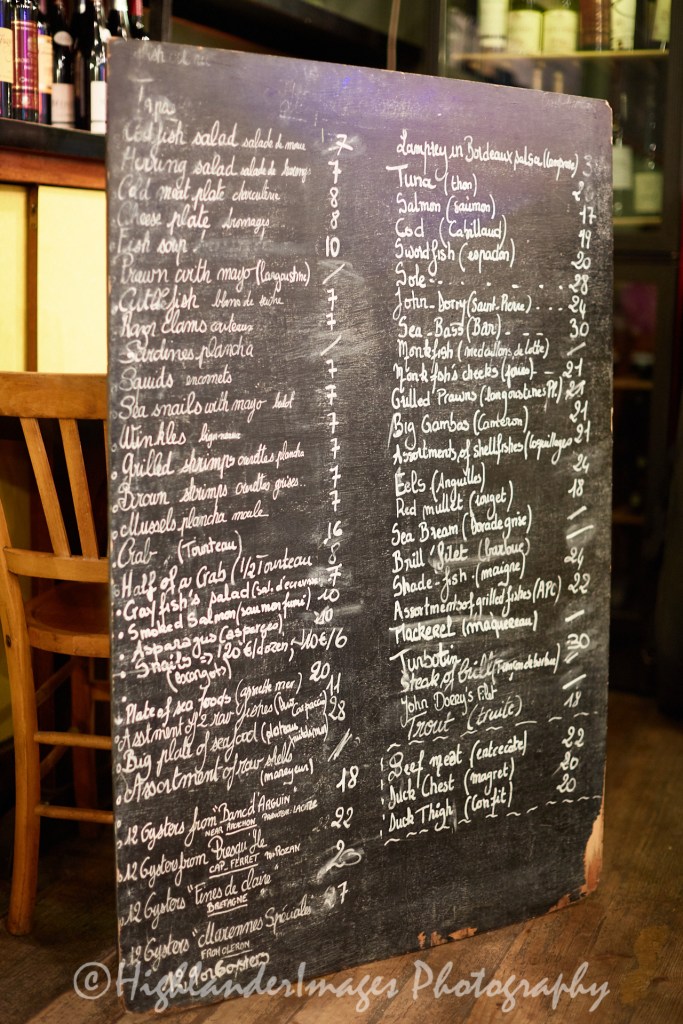 Tapa
Codfish salad salade de morue 7
Herring salad salade de harengs 7
Cold meat plate charcuterie 8
Cheese plate fromages 8
Fish soup 10
Prawn with mayo (langoustine) /
Cuttlefish blanc de seiche 7
Razor clams couteaux 7
Sardines plancha /
Squids encornets 7
Sea snails with mayo bulot 7
Winkles bigorneaux 7
Grilled shrimps crevettes plancha 7
Brown shrimps crevettes grises 7
Mussels plancha moule 7
Crab (Tourteau) 16
Half of a Crab (1/2 Tourteau 8
Crayfish's salad (sal. d'ecrevisse) 7
Smoked Salmon (saumon fumé) 10
Asparagus (asperges) 10
Snails => 120€/dozen; 10€/6
(Escargot)
Plate of sea foods (assiette mer) 20
Assortment of 2 raw fishes 11
Big plate of seafood (plateau 28
Assortment of raw shells //
(mareyeur)
12 Oysters from "Banc d'Arguin" 18
NEAR ARCACHON
12 Oysters from Presqu'île 22
CAP FERRET
12 Oysters "Fines de claire" 20
BRETAGNE
12 Oysters "Marennes Spéciale" 17
FROM OLERON
Lamprey in Bordeaux salsa (Lamproie)
Tuna (thon)
Salmon (saumon) 17
Cod (Cabillaud) 19
Swordfish (espadon) 20
Sole 28
John-Dorry (Saint-Pierre) 24
Sea-Bass (Bar) 30
Monkfish (medaillons de lotte) /
Monkfish's cheeks (joues) 21
Grilled Prawns (langoustines Pl.) 21
Big Gambas (Canteron) 21
Assortments of shellfishes (Coquillages 21
Eels (Anguilles) 24
Red mullet (rouget) 18
Sea Bream (Dorade grise) /
Brill filet (barbue) /
Shade-fish (maigre) 24
Assortments of grilled fishes (APC) 22
Mackerel (maquereau) /
Turbotin 30
Steak of brill (Tronçon de barbue)
John Dorry's Filet /
Trout (truite) 18
Beef meat (entrecôte) 22
Duck Chest (magret) 20
Duck Thigh (Confit) 20
©HighlanderImages Photography